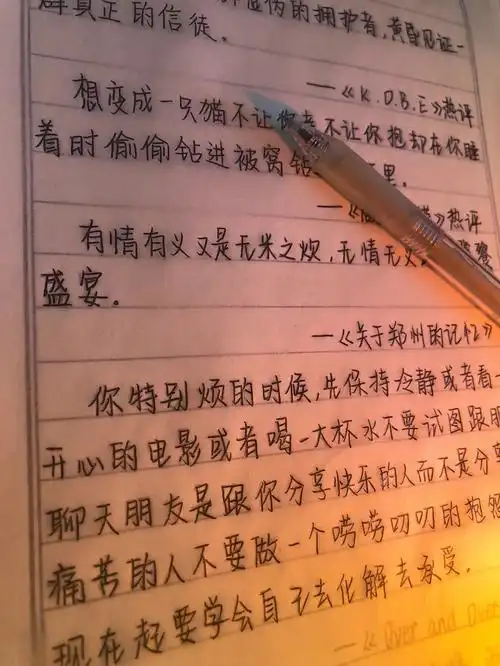 的拥护者，黄昏见证一
群真正的信徒。
——《K.O.B.E》热评
想变成一只猫不让你 不让你抱却在你睡
着时偷偷钻进被窝钻 里。
热评
有情有义又是无米之炊，无情无义
盛宴。
——《关于郑州的记忆》
你特别烦的时候，先保持冷静或者看一
开心的电影或者喝一大杯水不要试图跟朋
聊天朋友是跟你分享快乐的人而不是分享
痛苦的人不要做一个唠唠叨叨的抱怨
现在起要学会自己去化解去承受。
——《Over and Over